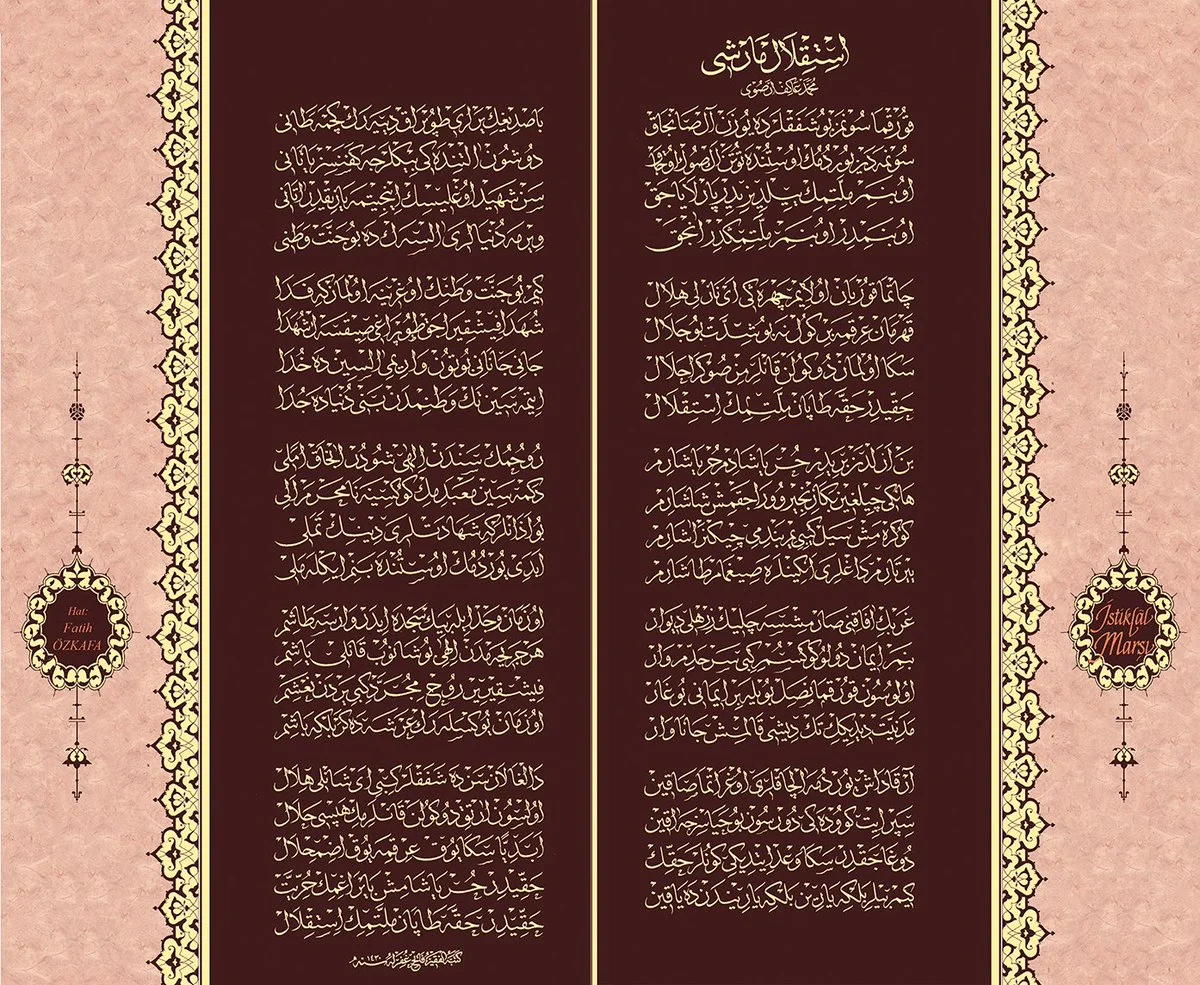 استقلال مارشى
محمد عاكف ارصوى
قورقما سونمز بو شفقلرده يوزن آل صانجاق
سونمه دن يوردمك اوستنده توتن اك صوك اوجاق
او بنم ملتمك ييلديزيدر پارلاياجق
او بنمدر او بنم ملتمكدر انجق
چاتما قوربان اولايم چهره كى اى نازلى هلال
قهرمان عرقمه بر كول نه بو شدت بو جلال
سكا اولماز دوكولن قانلرمز صوكرا حلال
حقيدر حقه طاپان ملتمك استقلال
بن ازلدن بريدر حر ياشادم حر ياشارم
هانكى چيلغين بكا زنجير ووراجقمش شاشارم
كوكره مش سيل كبى يم بنديمى چيكنر اشارم
ييرتارم داغلرى انكينلره صيغمام طاشارم
غربك افاقنى صارمشسه چليك زرهلى ديوار
بنم ايمان دولو كوكسم كبى سرحدم وار
اولوسون قورقما ناصل بويله بر ايمانى بوغار
مدنيت ديديكك تك ديشى قالمش جاناوار
آرقاداش يوردمه الچاقلرى اوغراتما صاقين
سپر ايت كوودەكى دورسون بو حياسزجه اقين
دوغاجقدر سكا وعد ايتديكى كونلر حقك
كيم بيلير بلكه يارين بلكه ياريندن ده ياقين
باصديغك يرلرى طوپراق ديه رك كچمه طانى
دوشون التنده كى بيكلرجه كفنسز ياتانى
سن شهيد اوغليسك اينجيتمه يازيقدر اتاكى
ويرمه دنيالرى السه ك ده بو جنت وطنى
كيم بو جنت وطنك اوغرينه اولماز كه فدا
شهدا فيشقيراجق طوپراغى صيقسه ك شهدا
جانى جانانى بوتون واريمى السين ده خدا
ايتمه سين تك وطنمدن بنى دنياده جدا
روحمك سندن الهى شودر انجاق املى
دكمه سين معبديمك كوكسنه نامحرم الى
بو اذانلر كه شهادتلرى دينك تملى
ابدى يوردمك اوستنده بنم ايكله ملى
او زمان وجد ايله بيك سجده ايدر وارسه طاشم
هر جريحه مدن الهى بوشانوب قانلى ياشم
فيشقيرير روح مجرد كبى يردن نعشم
او زمان يوكسله رك عرشه دكر بلكه باشم
دالغالان سن ده شفقلر كبى اى شانلى هلال
اولسون ارتق دوكولن قانلرمك هپسى حلال
ابديا سكا يوق عرقمه يوق اضمحلال
حقيدر حر ياشامش بايراغمك حريت
حقيدر حقه طاپان ملتمك استقلال
كتبه الفقير فاتح غفر له سنه ١٤٣٠
Hat:
Fatih
ÖZKAFA
İstiklâl
Marşı